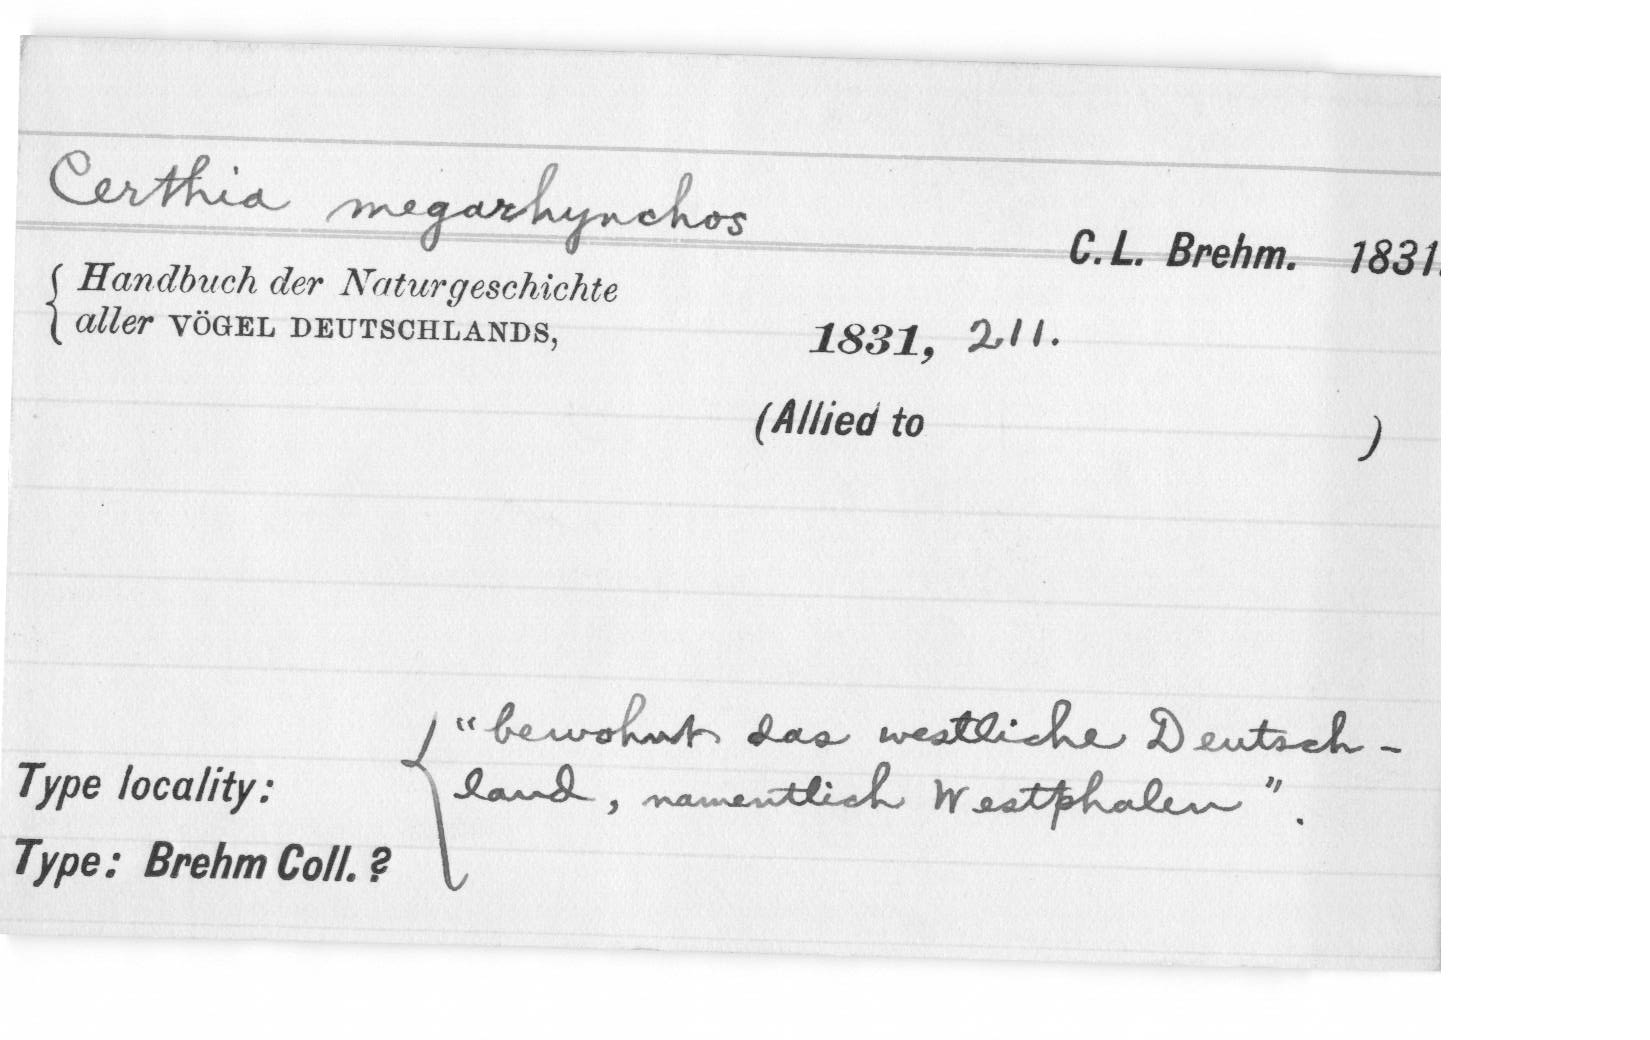 Certhia megarhynchos
C. L. Brehm. 1831.
Handbuch der Naturgeschichte
aller VÖGEL DEUTSCHLANDS,
1831, 211.
(Allied to )
"bewohnt das westliche Deutsch-
land, namentlich Westphalen".
Type locality:
Type: Brehm Coll. ?